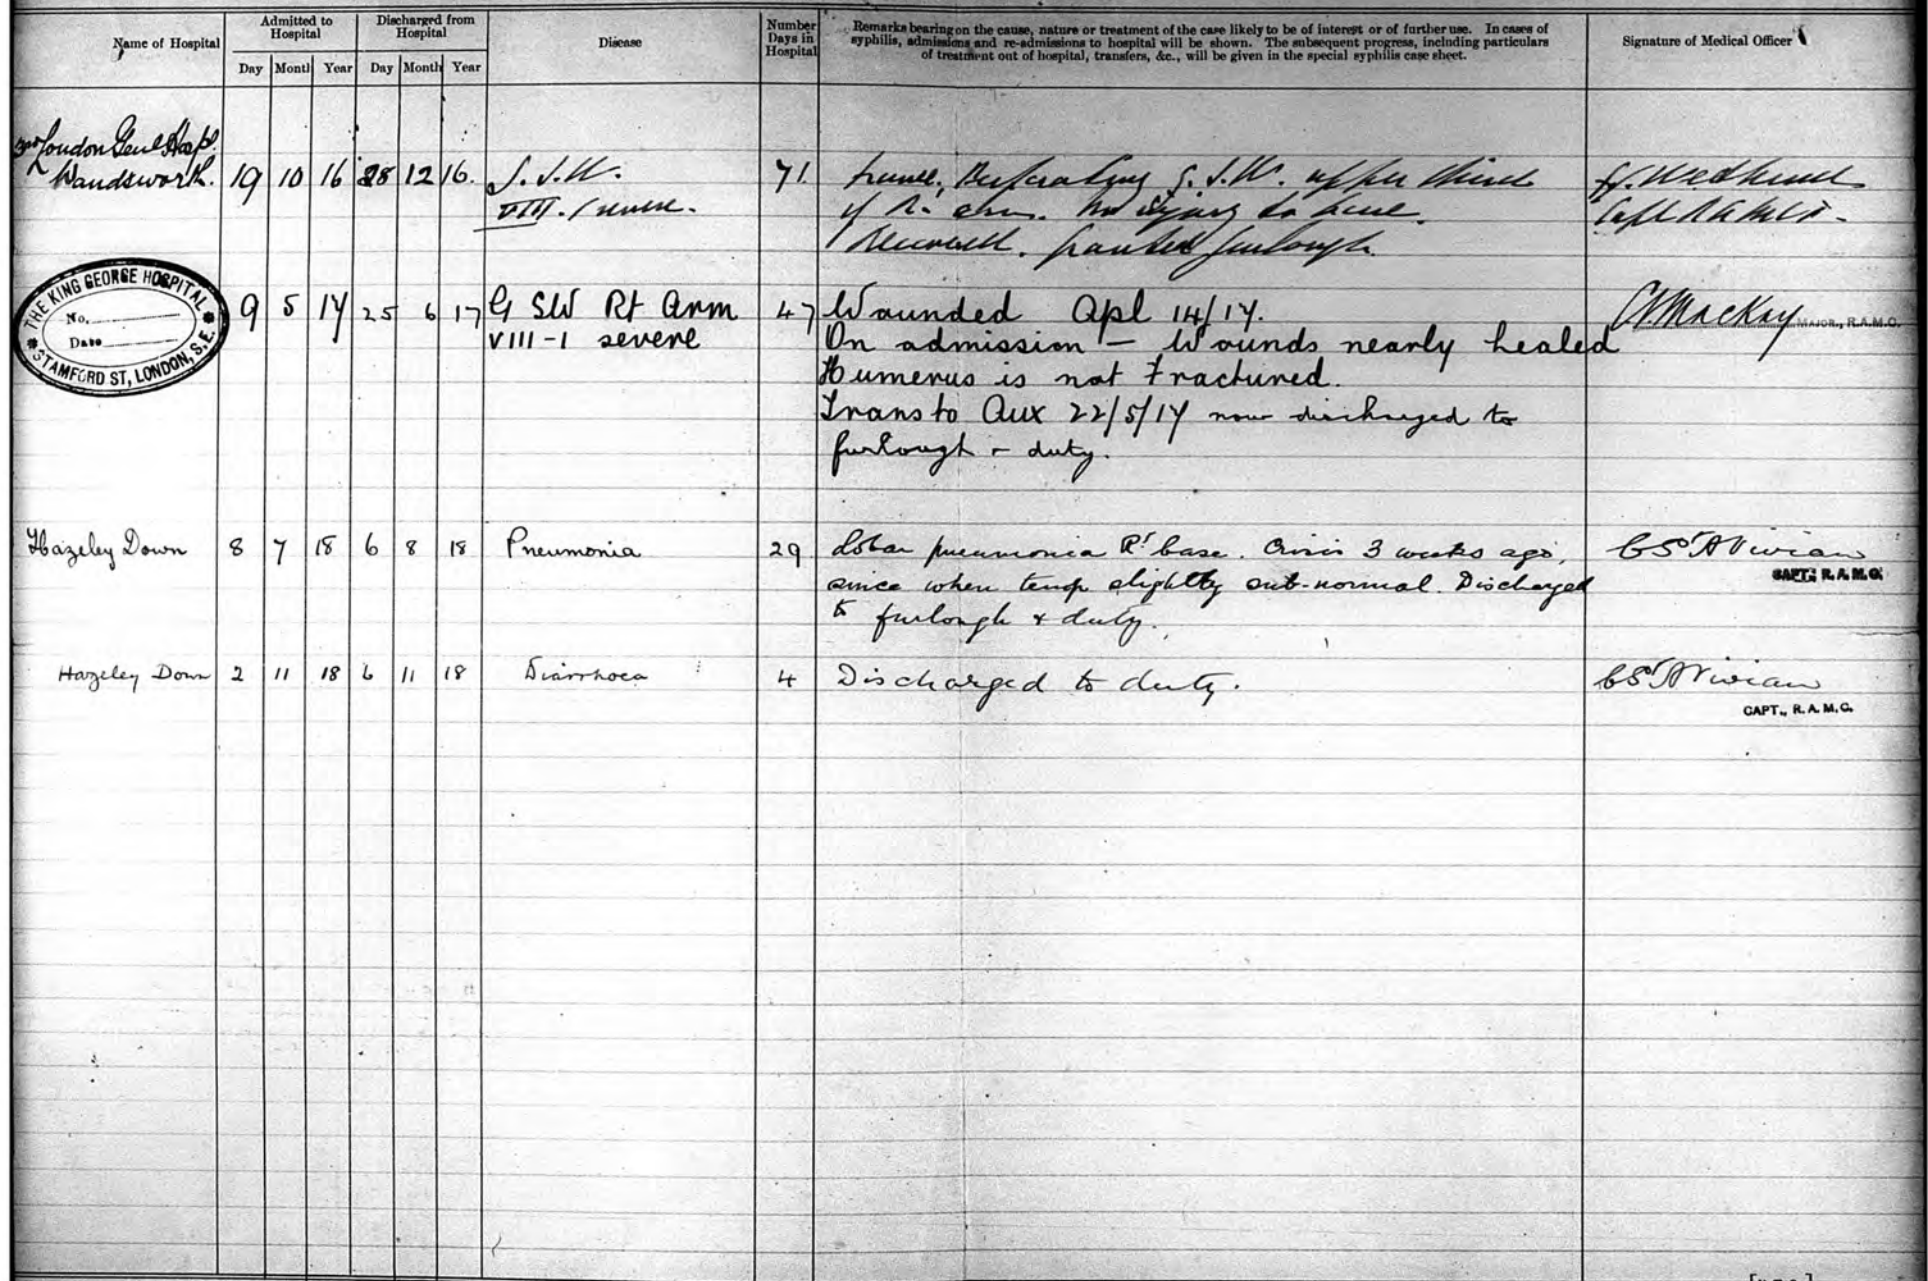 Name of Hospital
Admitted to Hospital
Discharged from Hospital
Disease
Number Days in Hospital
Remarks bearing on the cause, nature or treatment of the case likely to be of interest or of further use. In cases of
syphilis, admissions and re-admissions to hospital will be shown. The subsequent progress, including particulars
of treatment out of hospital, transfers, &c., will be given in the special syphilis case sheet.
Signature of Medical Officer
Day Month Year Day Month Year
3rd London Genl Hospl.
Wandsworth. 19 10 16 28 12 16. G.S.W. 71. Perforating G.S.W. upper third
VIII. 1 severe. of R. arm. No injury to bone.
granted furlough.
THE KING GEORGE HOSPITAL
No.
Date
STAMFORD ST, LONDON, S.E.
9 5 17 25 6 17 G SW Rt Arm 47 Wounded Apl 14/17. MacKay MAJOR., R.A.M.C.
VIII-1 severe On admission - Wounds nearly healed
Humerus is not Fractured.
Trans to Aux 22/5/17 now discharged to
furlough & duty.
Hazeley Down 8 7 18 6 8 18 Pneumonia 29 Lobar pneumonia Rt base. Crisis 3 weeks ago, C St A Vivian
since when temp slightly sub-normal. Discharged CAPT., R.A.M.C.
to furlough & duty.
Hazeley Down 2 11 18 6 11 18 Diarrhoea 4 Discharged to duty. C St A Vivian
CAPT., R.A.M.C.